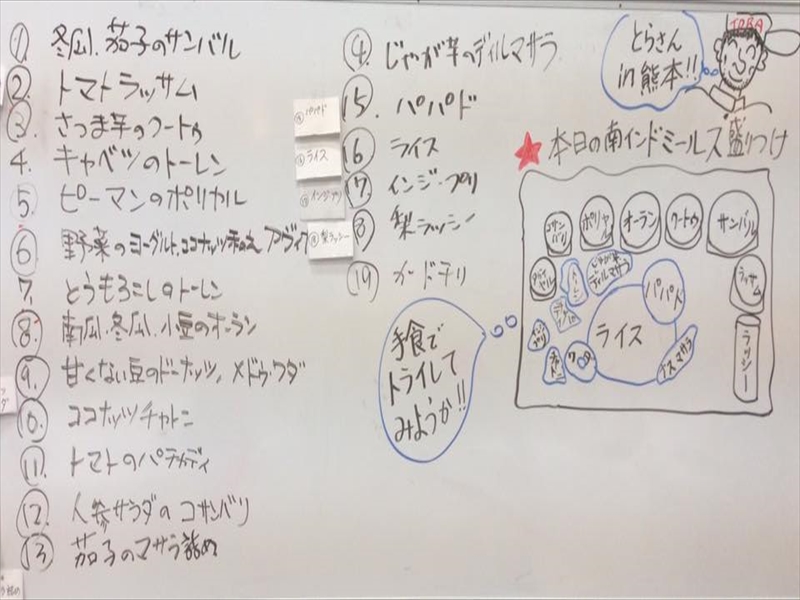 ① 冬瓜、茄子のサンバル
② トマトラッサム
③ さつま芋のクートゥ
4. キャベツのトーレン
5. ピーマンのポリヤル
⑥ 野菜のヨーグルト、ココナッツ和え アヴィア
7. とうもろこしのトーレン
⑧ 南瓜、冬瓜、小豆のオーラン
⑨ 甘くない豆のドーナッツ、メドゥワダ
⑩ ココナッツチャトニ
⑪ トマトのパチャディ
⑫ 人参サラダの コサンバリ
⑬ 茄子のマサラ詰め
④ じゃが芋のディルマサラ
⑮ パパド
⑯ ライス
⑰ インジ・プリ
⑧ 梨ラッシー
⑲ カードチリ
⑮ パパド
ライス
インジ・プリ
⑱ 梨ラッシー
TORA
とらさん
in 熊本!!
★本日の南インドミールス盛りつけ
コサンバリ
ポリヤル
オーラン
クートゥ
サンバル
じゃが芋ディルマサラ
パパド
ラッサム
ライス
ラッシー
ナスマサラ
ワダ
手食で
トライして
みようか!!